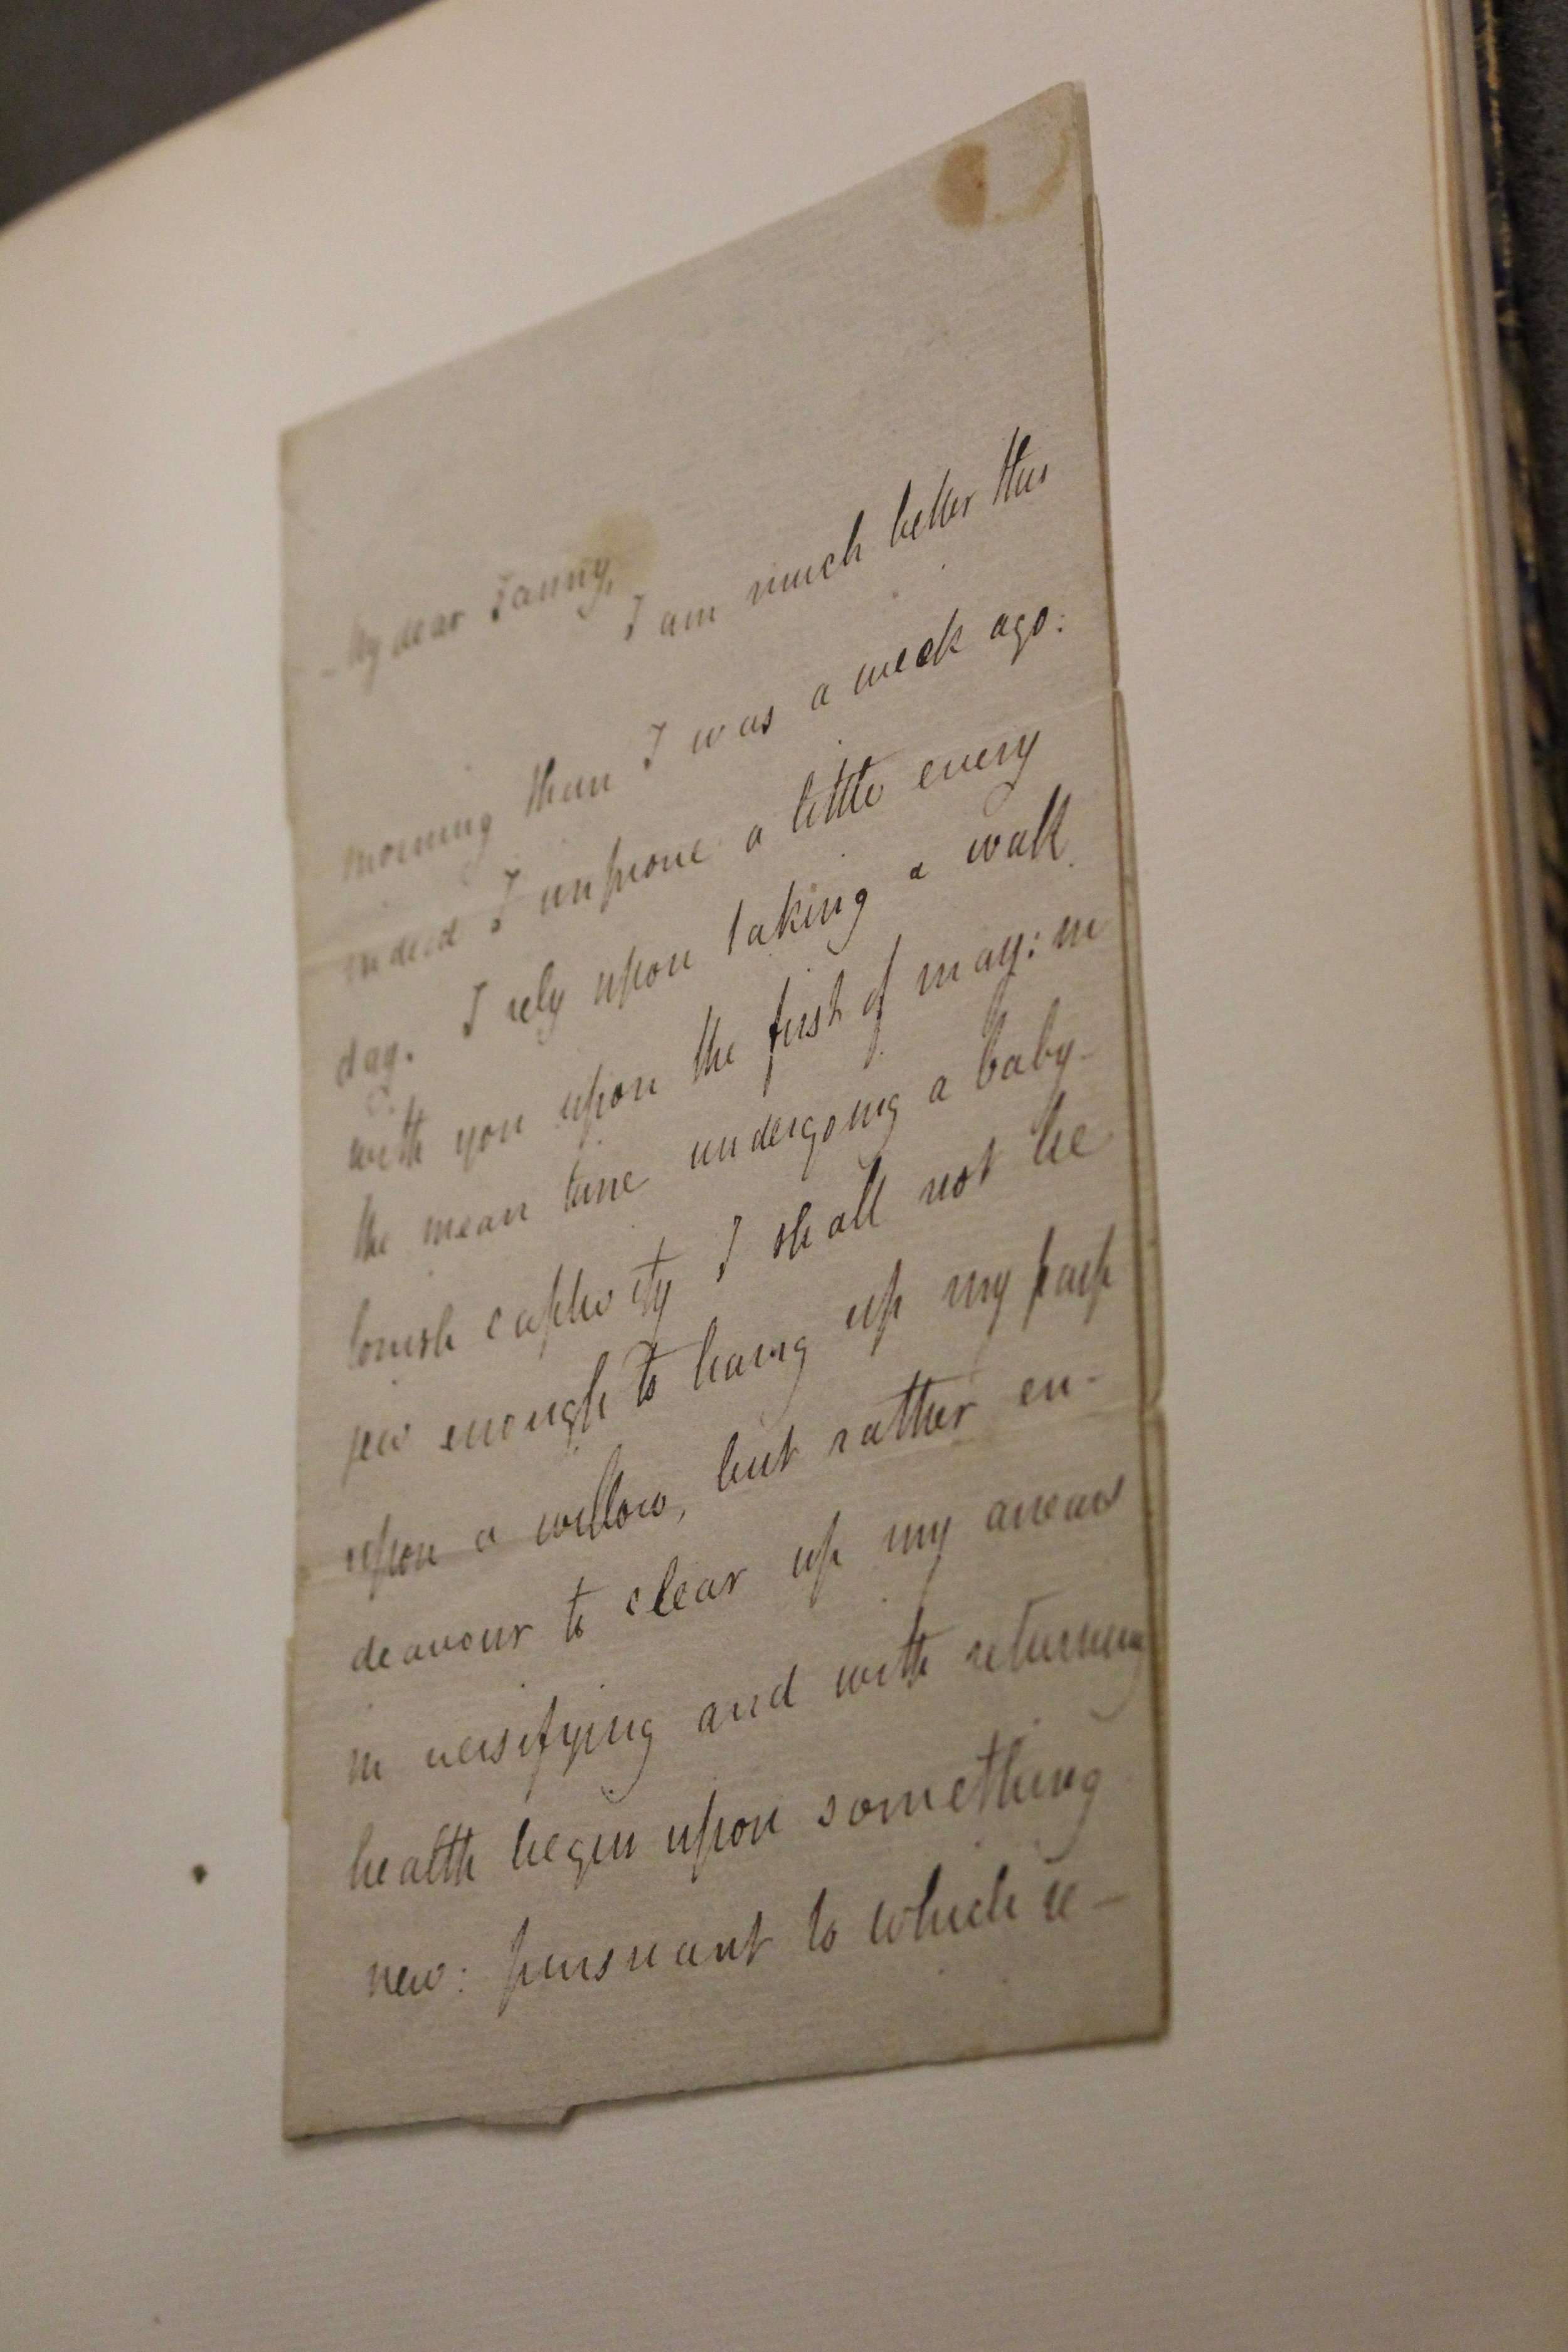 My dear Fanny,
I am much better this
morning than I was a week ago:
indeed I improve a little every
day. I rely upon taking a walk
with you upon the first of may: in
the mean time undergoing a baby-
lonish captivity I shall not be
jew enough to hang up my harp
upon a willow, but rather en-
deavour to clear up my arrears
in versifying and with returning
health begin upon something
new: pursuant to which re-